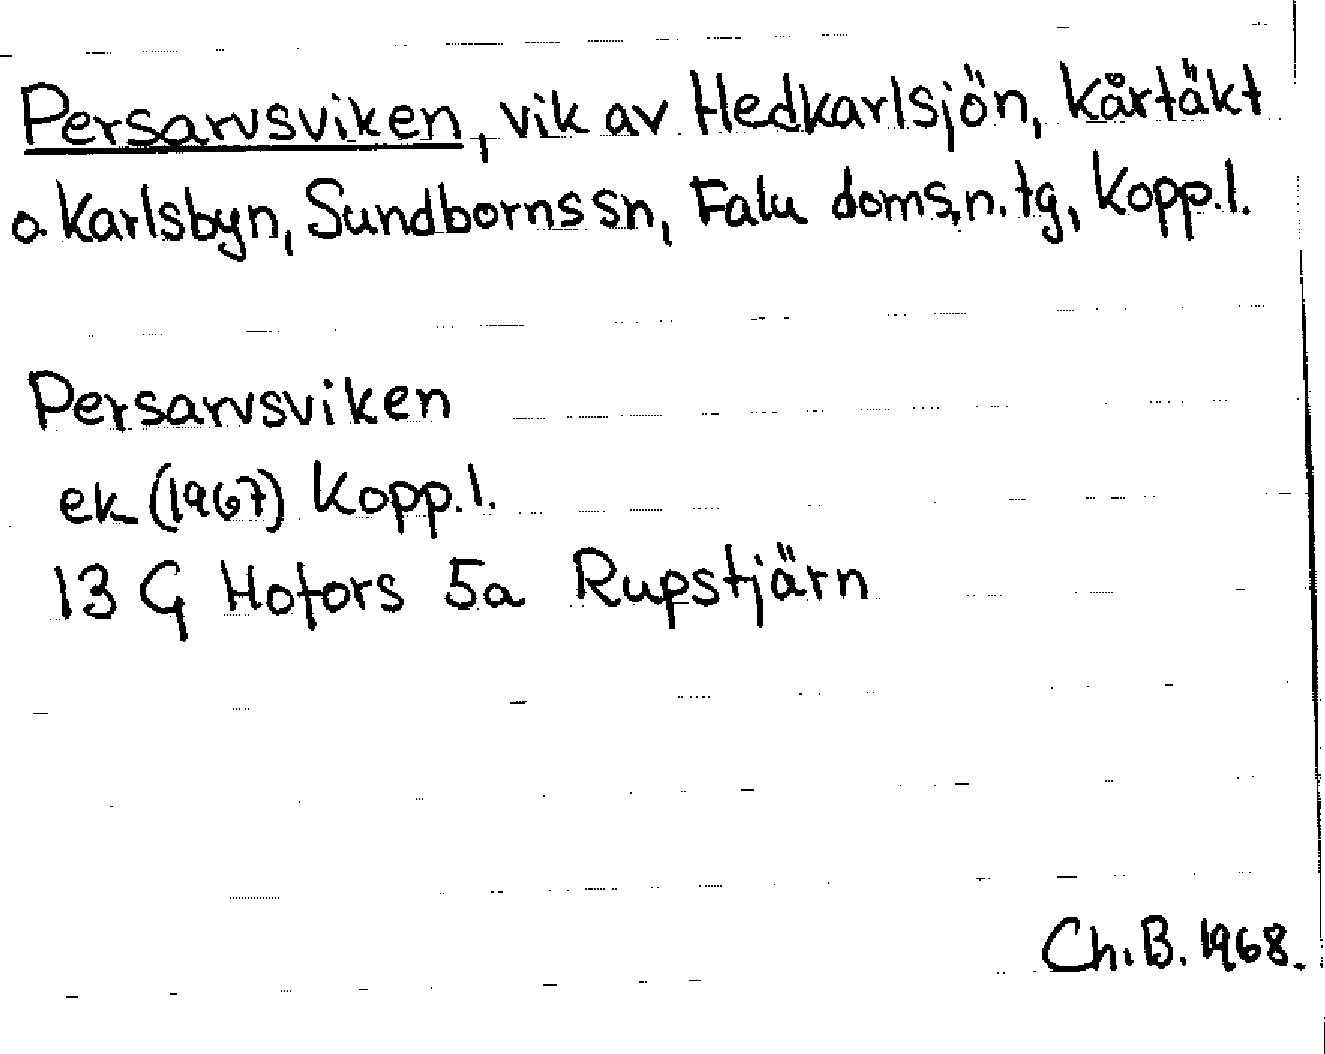 Persarvsviken, vik av Hedkarlsjön, Kårtäkt
o. Karlsbyn, Sundborns sn, Falu doms.n. tg, Kopp.l.
Persarvsviken
ek (1967) Kopp.l.
13 G Hofors 5a Rupstjärn
Ch.B. 1968.